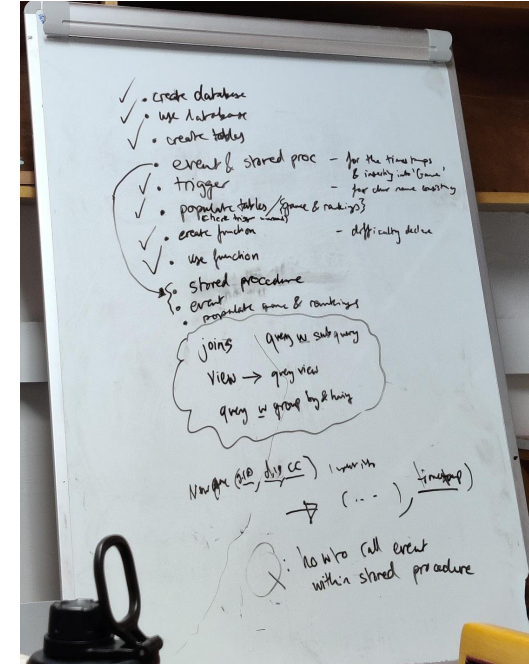 ✓ • create database
✓ • use database
✓ • create tables
• event & stored proc - for the timestamps
& inserting into 'Game'
✓ • trigger - for char name
✓ • populate tables / {game & rankings}
(where trigger
✓ • create function - difficulty
✓ • use function
• stored procedure
• event
• populate game & rankings
joins query w. subquery
View → query view
query w group by & having
⇒ (...), timestamp)
Q: how to call event
within stored procedure